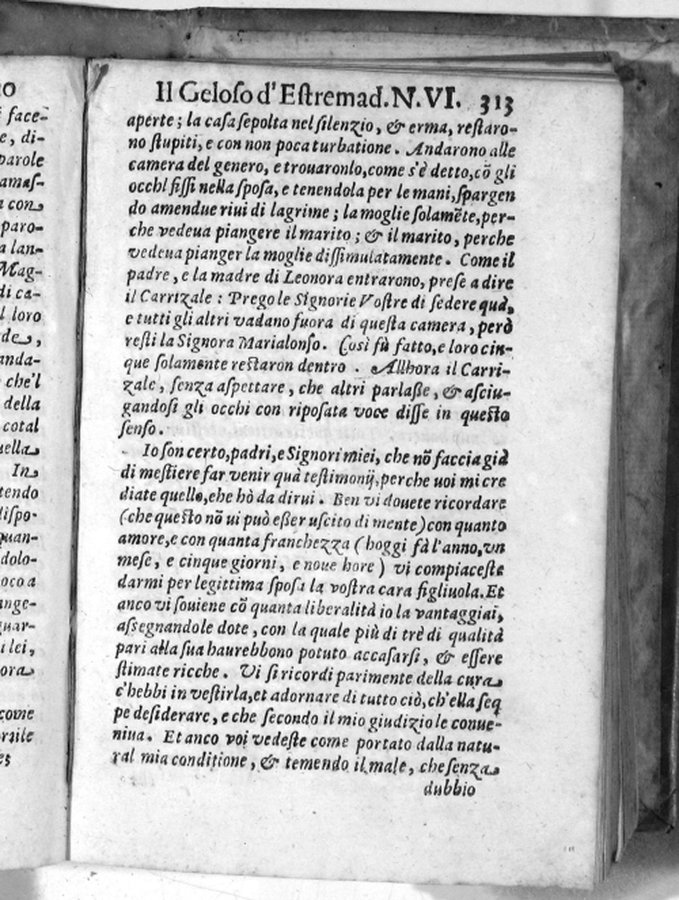 Il Geloso d'Estremad. N. VI. 313
aperte; la casa sepolta nel silenzio, & erma, restaro-
no stupiti, e con non poca turbatione. Andarono alle
camera del genero, e trouaronlo, come s'è detto, cō gli
occhI fissi nella sposa, e tenendola per le mani, spargen
do amendue riui di lagrime; la moglie solamēte, per-
che vedeua piangere il marito; & il marito, perche
vedeua pianger la moglie dissimulatamente. Come il
padre, e la madre di Leonora entrarono, prese a dire
il Carrizale: Prego le Signorie Vostre di sedere quà,
e tutti gli altri vadano fuora di questa camera, però
resti la Signora Marialonso. Così fù fatto, e loro cin-
que solamente restaron dentro. Allhora il Carri-
zale, senza aspettare, che altri parlasse, & asciu-
gandosi gli occhi con riposata voce disse in questo
senso.
Io son certo, padri, e Signori miei, che nō faccia già
di mestiere far venir quà testimonij, perche uoi mi cre
diate quello, ehe hò da dirui. Ben vi douete ricordare
(che questo nō ui può esser uscito di mente) con quanto
amore, e con quanta franchezza (hoggi fà l'anno, vn
mese, e cinque giorni, e noue hore) vi compiaceste
darmi per legittima sposa la vostra cara figliuola. Et
anco vi souiene cō quanta liberalità io la vantaggiai,
assegnandole dote, con la quale più di trè di qualità
pari alla sua haurebbono potuto accasarsi, & essere
stimate ricche. Vi si ricordi parimente della cura
c'hebbi in vestirla, et adornare di tutto ciò, ch'ella seq
pe desiderare, e che secondo il mio giudizio le conue-
niua. Et anco voi vedeste come portato dalla natu-
ral mia conditione, & temendo il male, che senza
dubbio